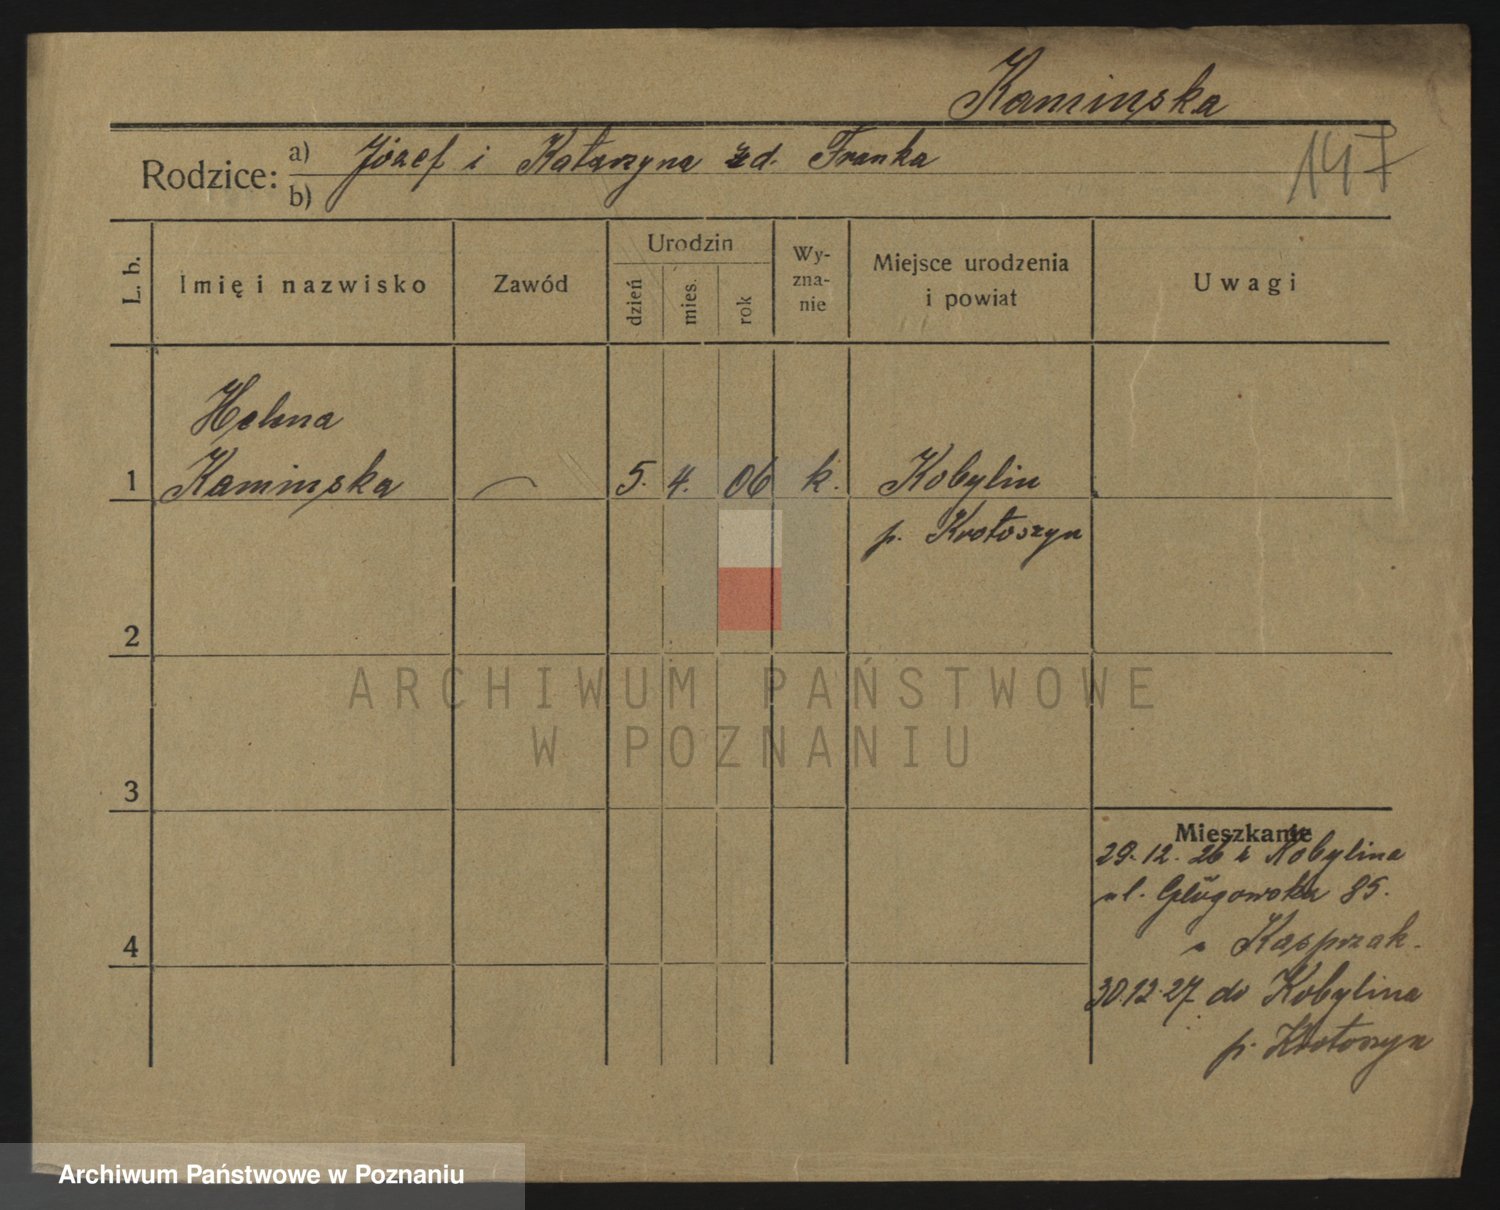 Kaminska
Rodzice: a) Józef i Katarzyna zd. Franka
b)
147
L. b.
Imię i nazwisko
Zawód
Urodzin
dzień
mies.
rok
Wy-
zna-
nie
Miejsce urodzenia
i powiat
Uwagi
Helena
1 Kaminska 5. 4. 06 k. Kobylin
p. Krotoszyn
2
3
4
Mieszkanie
29.12.26 z Kobylina
ul. 85.
Kasprzak.
30.12.27 do Kobylina
p. Krotoszyn
ARCHIWUM PAŃSTWOWE
W POZNANIU
Archiwum Państwowe w Poznaniu